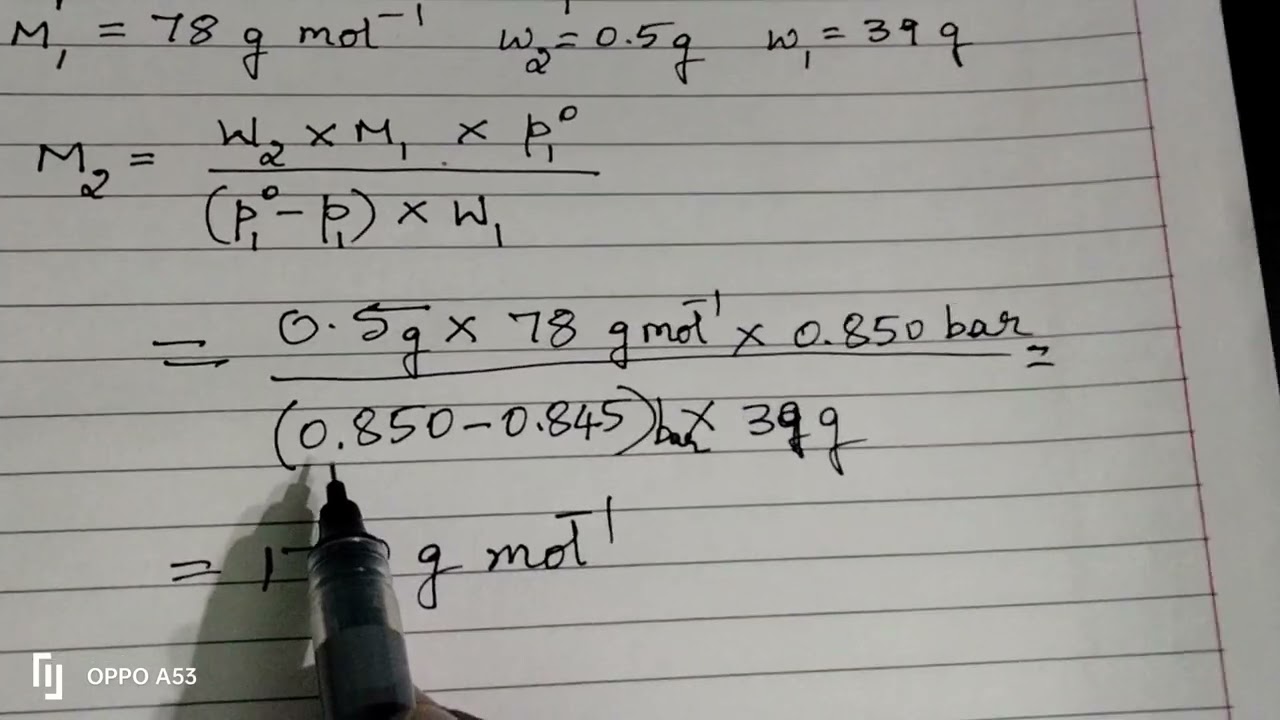 M₁ = 78 g mol⁻¹ w₂ = 0.5g w₁ = 39 g
M₂ = W₂ × M₁ × p₁⁰
(p₁⁰ - p₁) × W₁
= 0.5g × 78 g mol⁻¹ × 0.850 bar =
(0.850 - 0.845) bar × 39 g
= g mol⁻¹
OPPO A53